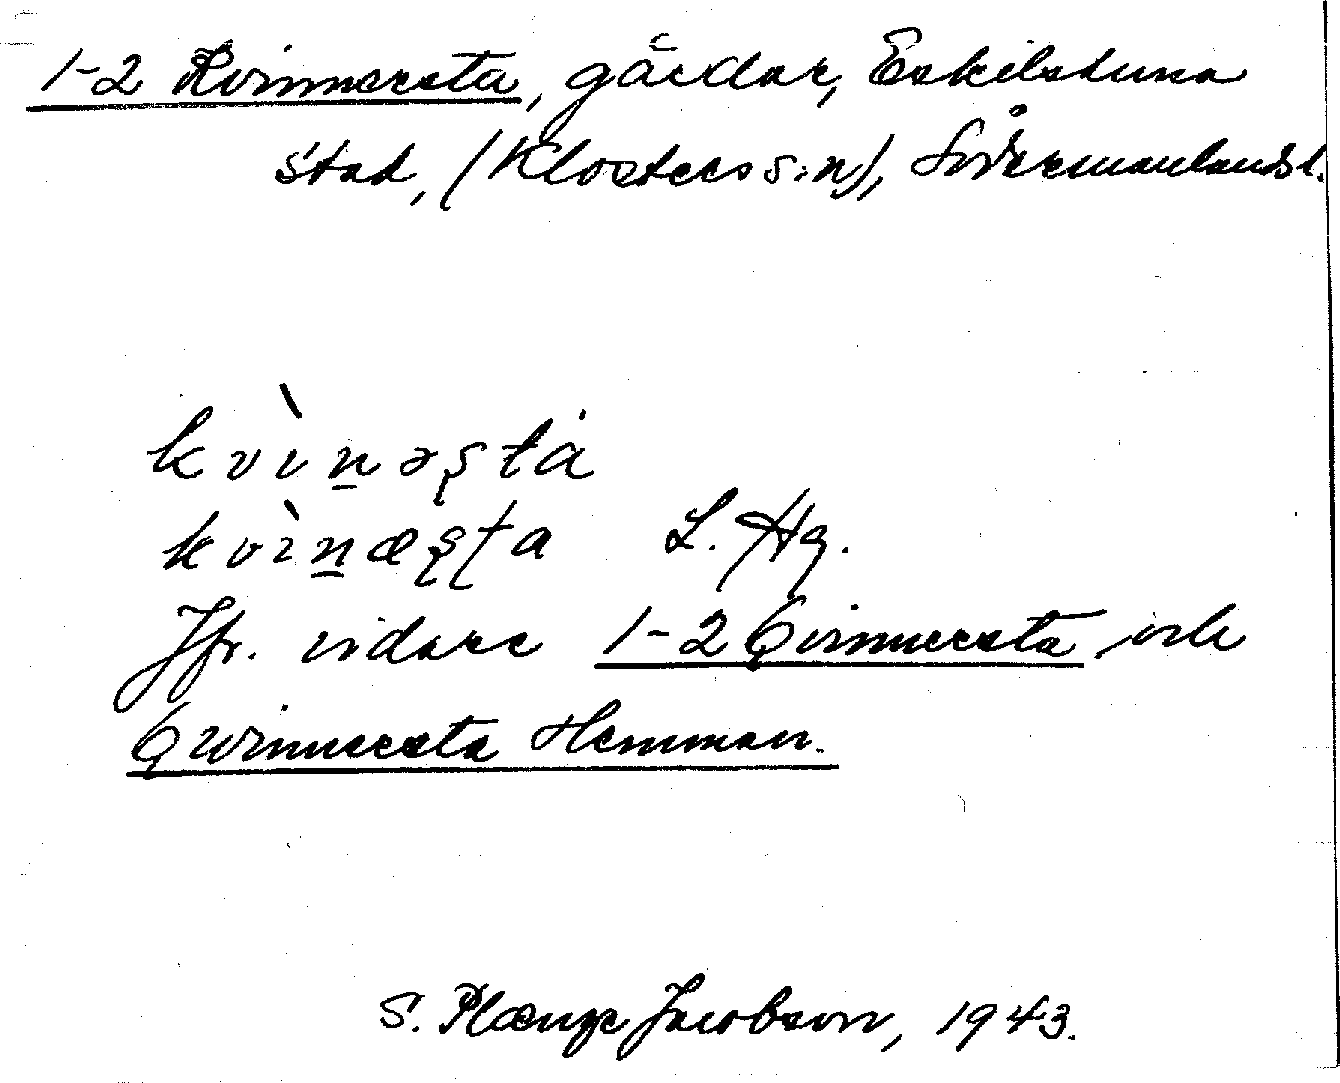 1-2 Kvinnersta, gårdar, Eskilstuna
stad, (Klosters s:n), Södermanlands l.
kvìn̲əʂta
kvìn̲æʂʈa L. Hg.
Jfr. vidare 1-2 Qvinnersta och
Qwinnersta Hemman.
S. Plænge Jacobson, 1943.